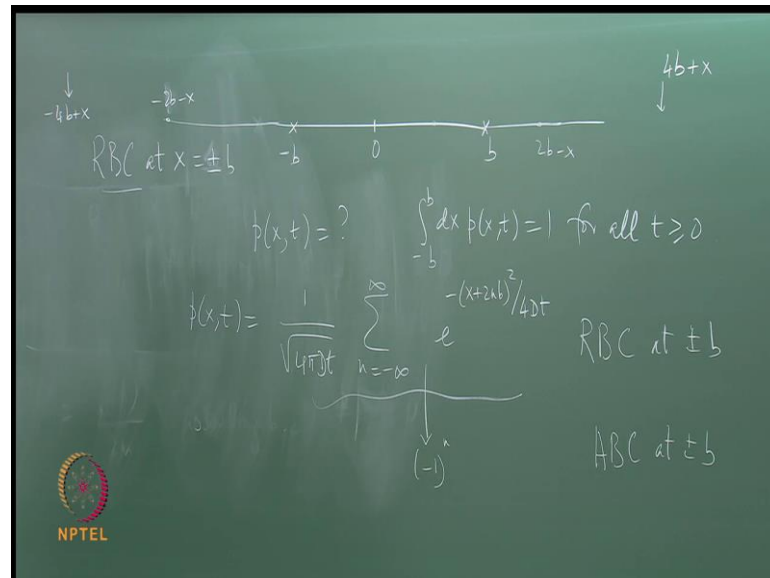 4b+x
-4b+x
-2b-x
-b 0 b 2b-x
RBC at x = ±b
p(x,t) = ? ∫_{-b}^{b} dx p(x,t) = 1 for all t ≥ 0
p(x,t) = 1/√(4πDt) ∑_{n=-∞}^{∞} e^{-(x+2nb)²/4Dt} RBC at ±b
(-1)^n ABC at ±b
NPTEL